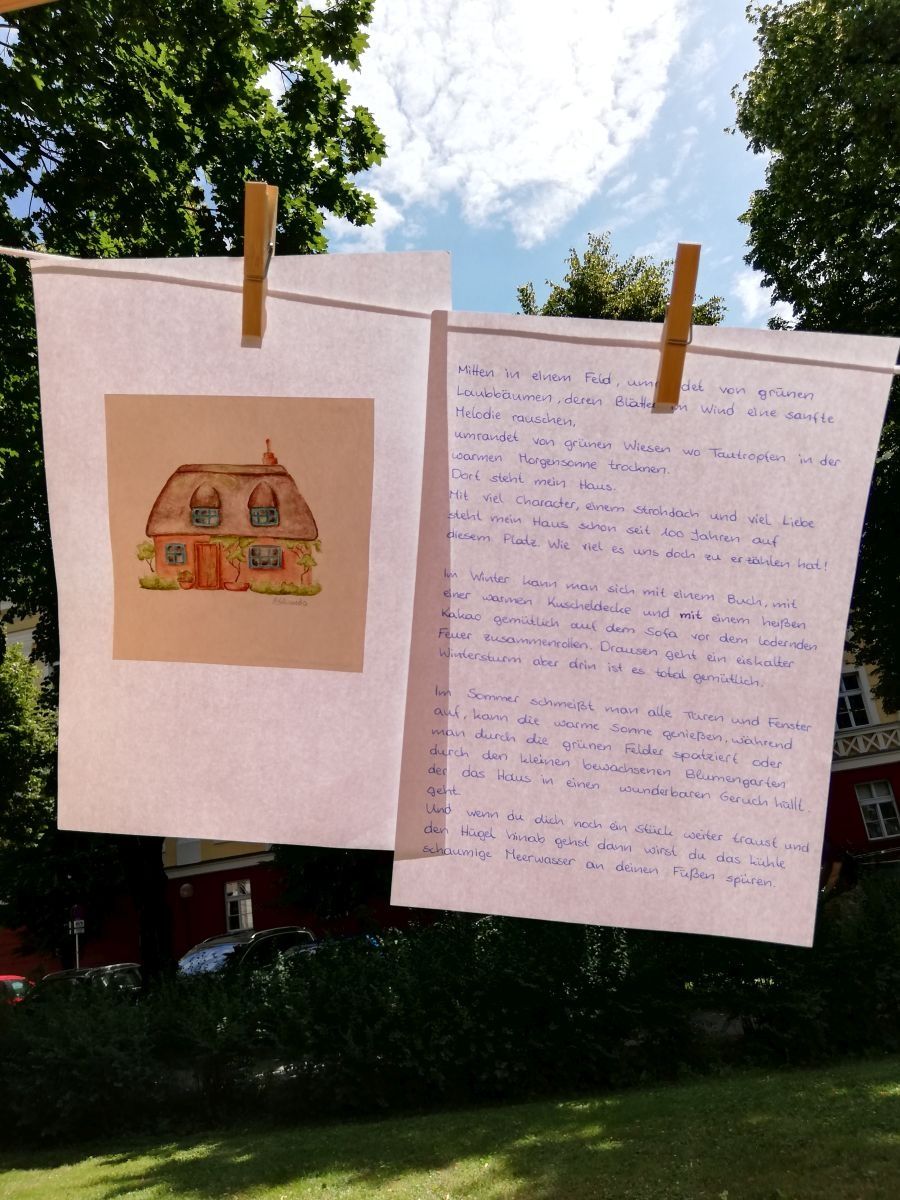 Mitten in einem Feld, um det von grünen
Laubbäumen, deren Blätter im Wind eine sanfte
Melodie rauschen,
umrandet von grünen Wiesen wo Tautropfen in der
warmen Morgensonne trocknen.
Dort steht mein Haus.
Mit viel Character, einem Strohdach und viel Liebe
steht mein Haus schon seit 100 Jahren auf
diesem Platz. Wie viel es uns doch zu erzählen hat!
Im Winter kann man sich mit einem Buch, mit
einer warmen Kuscheldecke und mit einem heißen
Kakao gemütlich auf dem Sofa vor dem lodernden
Feuer zusammenrollen. Drausen geht ein eiskalter
Wintersturm aber drin ist es total gemütlich.
Im Sommer schmeißt man alle Türen und Fenster
auf, kann die warme Sonne genießen, während
man durch die grünen Felder spatziert oder
durch den kleinen bewachsenen Blumengarten
der das Haus in einen wunderbaren Geruch hüllt.
geht.
Und wenn du dich noch ein Stück weiter traust und
den Hügel hinab gehst dann wirst du das kühle
schaumige Meerwasser an deinen Füßen spüren.